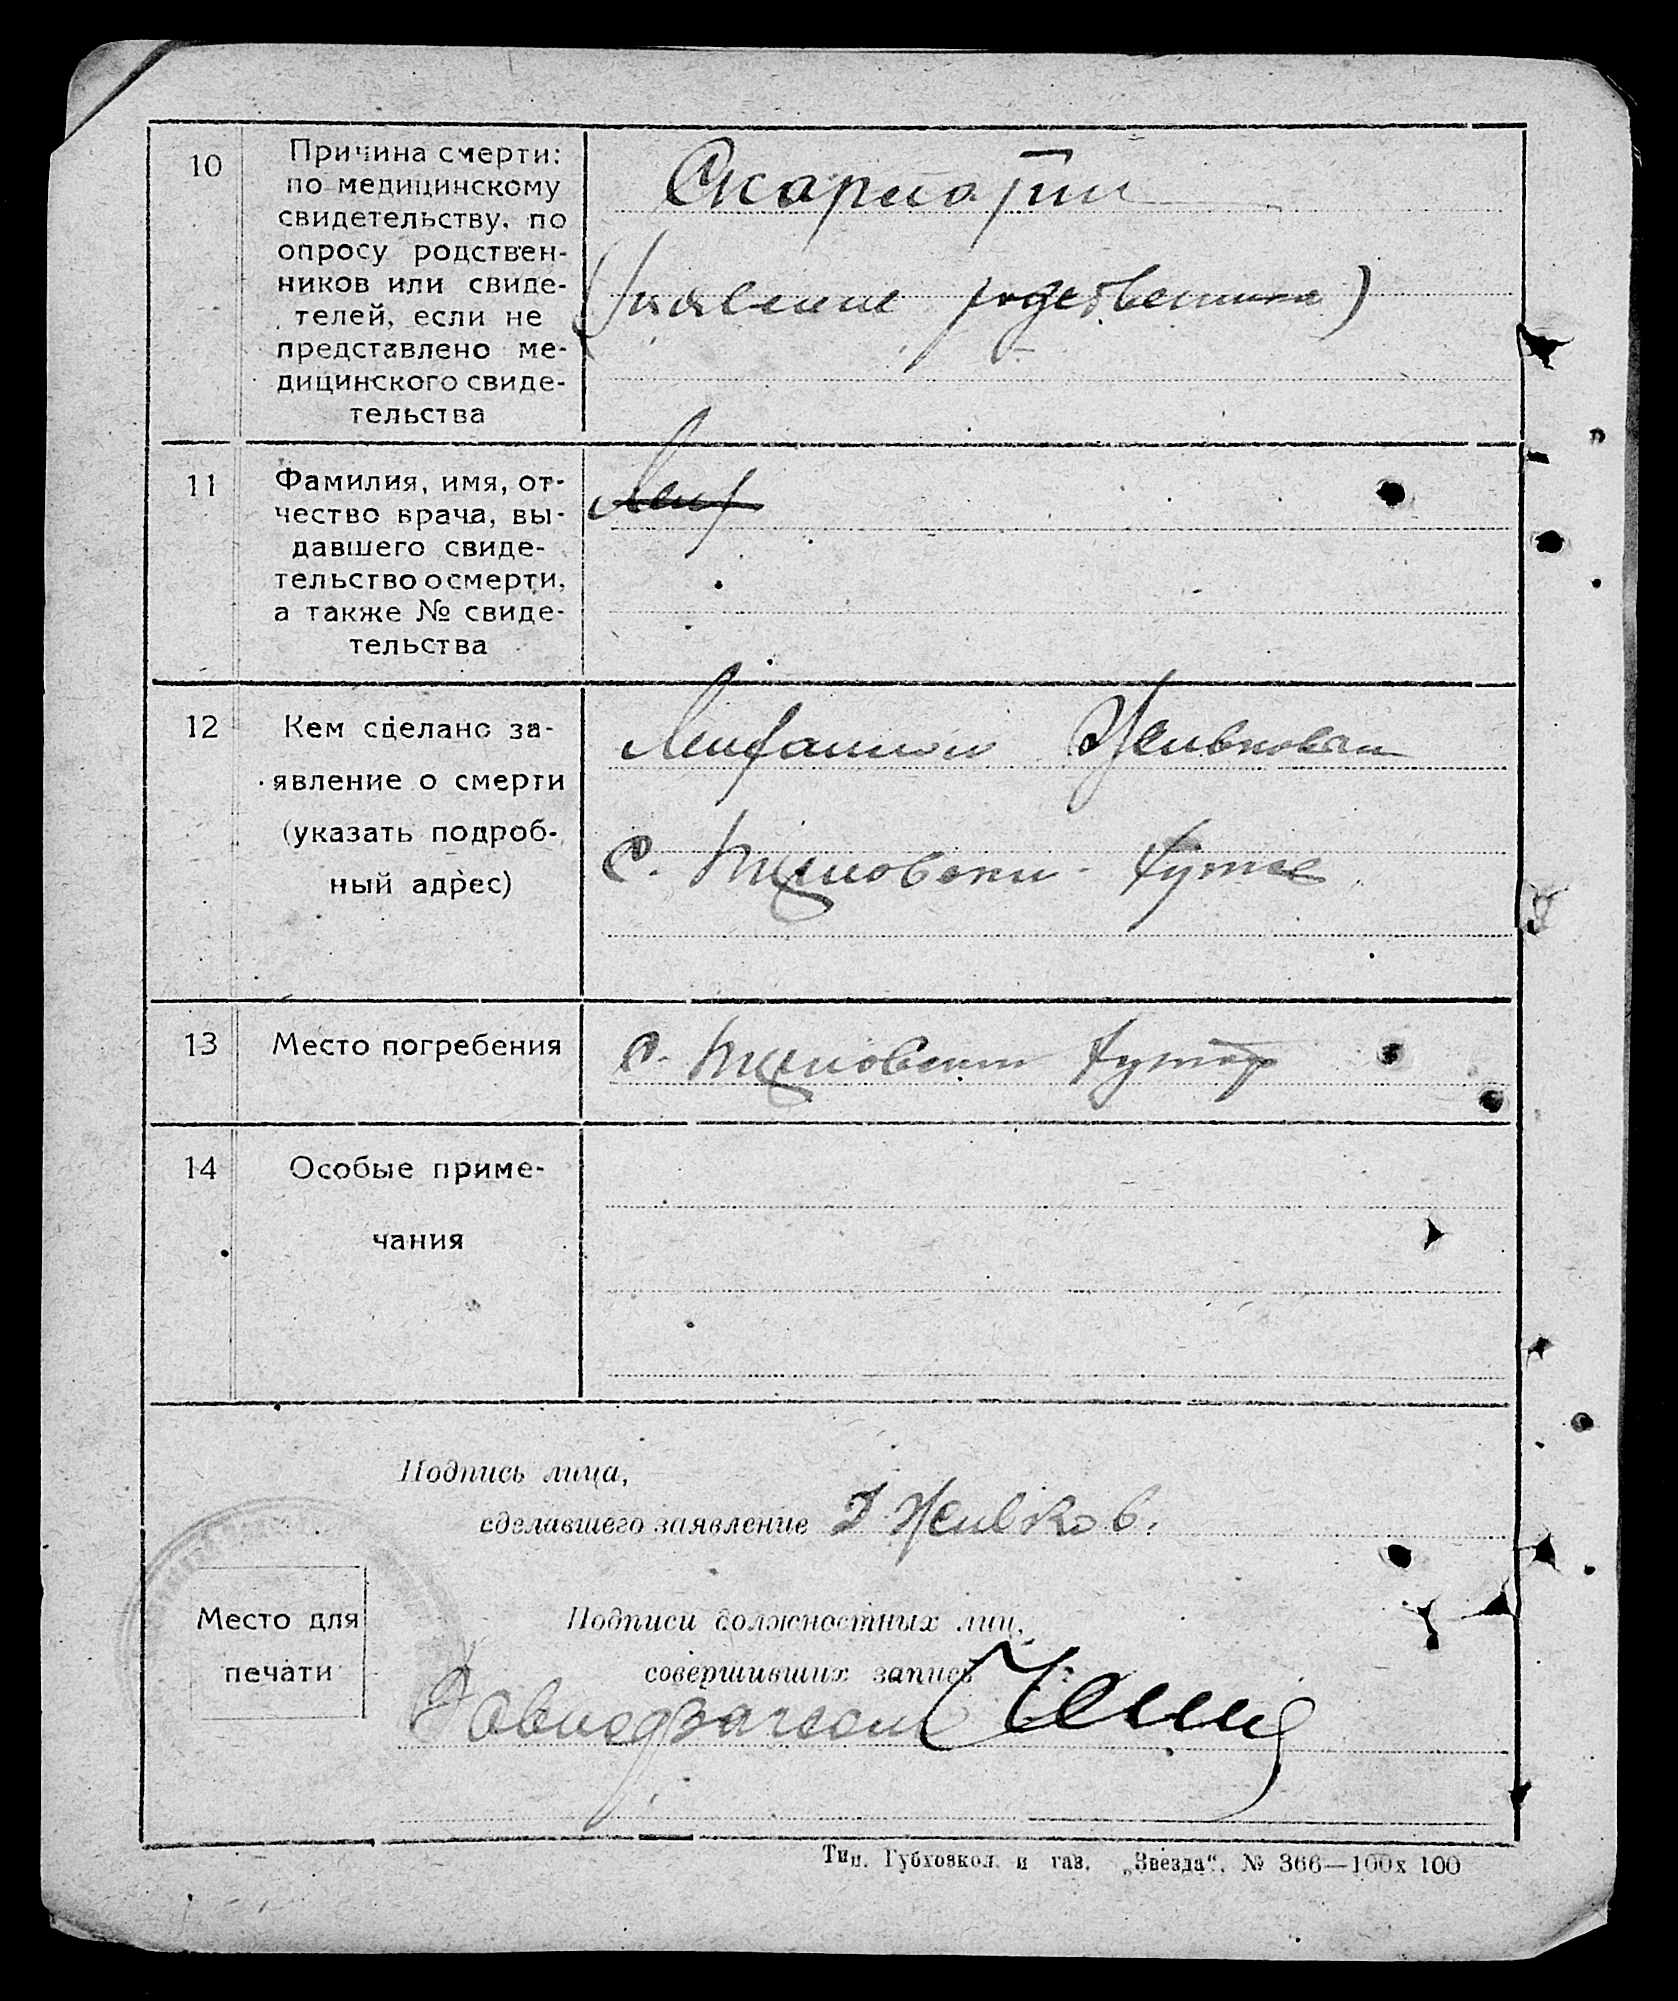 10
Причина смерти:
по медицинскому
свидетельству, по
опросу родствен-
ников или свиде-
телей, если не
представлено ме-
дицинского свиде-
тельства
родственника)
11
Фамилия, имя, от-
чество врача, вы-
давшего свиде-
тельство о смерти,
а также № свиде-
тельства
12
Кем сделано за-
явление о смерти
(указать подроб-
ный адрес)
с.
13
Место погребения
с. Хутор
14
Особые приме-
чания
Подпись лица,
сделавшего заявление Живков.
Место для
печати
Подписи должностных лиц,
совершивших запись
Завподзагсом
Тип. Губховкол. и газ. „Звезда“. № 366—100х100